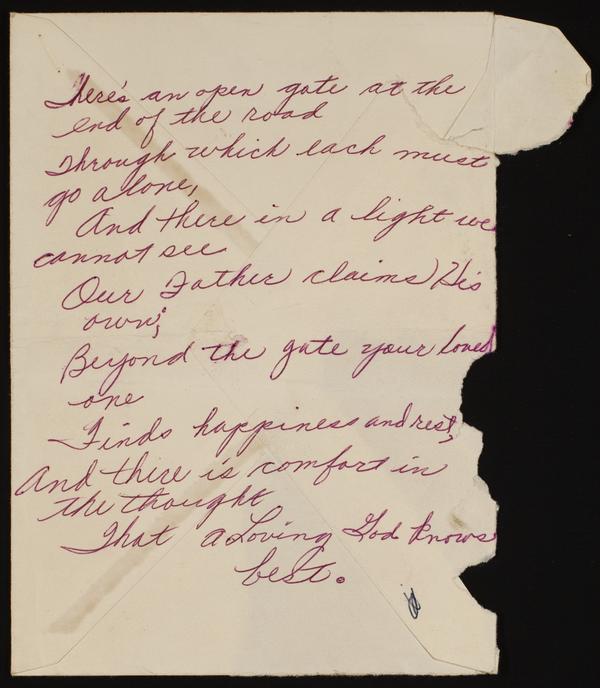 There's an open gate at the
end of the road
Through which each must
go alone,
And there in a light we
cannot see
Our Father claims His
own;
Beyond the gate your loved
one
Finds happiness and rest,
And there is comfort in
the thought
That a Loving God knows
best.